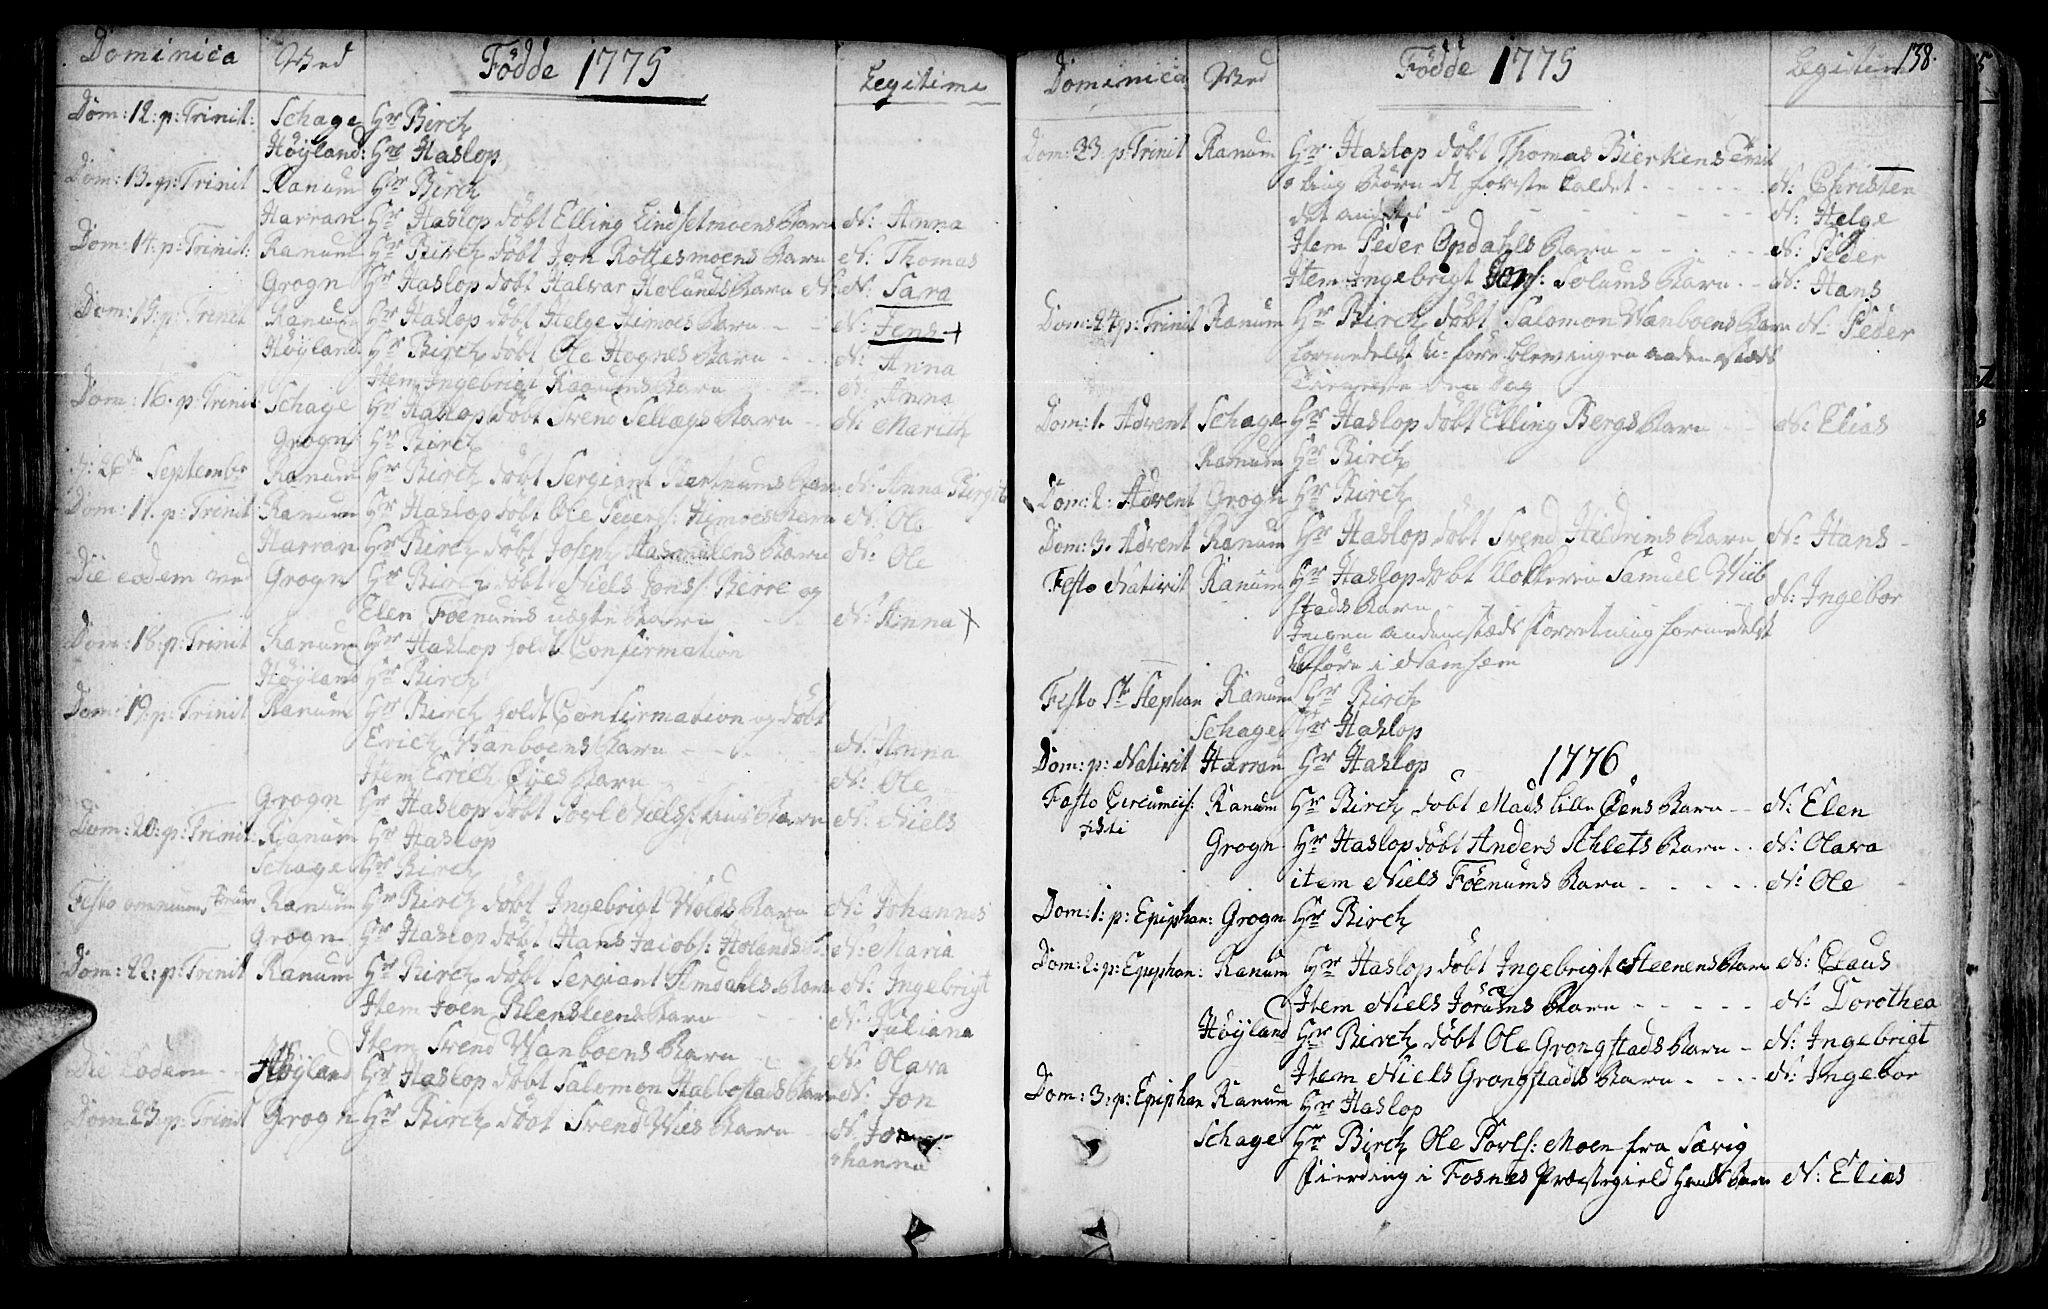 Dominica Ved Fødde 1775 Legitimi
Dom: 12. p: Trinit: Schage Hr Birch
Høyland: Hr Haslop
Dom: 13. p: Trinit Ranum Hr Birch
Harran Hr Haslop døbt Elling Lindsetmoens Barn N: Anna
Dom: 14. p: Trinit: Ranum Hr Birch døbt Jon Røttesmoens Barn N: Thomas
Grogn Hr Haslop døbt Halvar Barn N: Sara
Dom: 15: p: Trinit Ranum Hr Haslop døbt Helge Aimoes Barn - - N: Jens +
Høyland Hr Birch døbt Ole Hognes Barn - - N: Anna
Item Ingebrigt Ranums Barn - - N: Anna
Dom: 16. p: Trinit: Schage Hr Haslop døbt Svend Sellægs Barn - N: Marith
Grogn Hr Birch
d: 26de Septembr Ranum Hr Birch døbt Sergiant Barn N: Anna Birgit
Dom: 17. p: Trinit: Ranum Hr Haslop døbt Ole Peders: Aimoes Barn N: Ole
Harran Hr Birch døbt Joseph Barn N: Ole
Die eodem ved Grogn Hr Birch døbt Niels Jons: Berre og
Elen Føenums uægte Barn - - N: Anna +
Dom: 18: p: Trinit Ranum Hr Haslop holdt Confirmation
Høyland Hr Birch
Dom: 19. p: Trinit Ranum Hr Birch holdt Confirmation og døbt
Erich Wanboens Barn - - - N: Anna
Item Erich Øyes Barn - N: Ole
Grogn Hr Haslop døbt Porl Barn N: Niels
Dom: 20: p: Trinit: Ranum Hr Haslop
Schage Hr Birch
Festo omnium Ranum Hr Birch døbt Ingebrigt Wolds Barn N: Johannes
Grogn Hr Haslop døbt Hans Jacobs: Hølands B: N: Maria
Dom: 22: p: Trinit Ranum Hr Birch døbt Sergiant Semdahls Barn N: Ingebrigt
Item Joen Barn - - N: Juliana
Item Svend Wanboens Barn - - N: Olava
Die Eodem - - Høyland Hr Haslop døbt Salomon Hallostads Barn N: Jon
Dom: 23 p: Trinit Grogn Hr Birch døbt Svend Wies Barn - N: Jo-
hanna
Dominica Ved Fødde 1775 Legitimi 138.
Dom: 23. p: Trinit Ranum Hr Haslop døbt Thomas Bierkens
Børn dt første kaldet - - - - - N: Christen
det andet - - - - - - N: Helge
Item Peder Opdahls Barn - - - - N: Peder
Item Ingebrigt Jons: Solums Barn - - N: Hans
Dom: 24 p: Trinit Ranum Hr Birch døbt Salomon Wanboens Barn N: Peder
formedelst u-føre blev ingen anden stæds
Tieneste den dag
Dom: 1. Advent Schage Hr Haslop døbt Elling Bergs Barn - - N: Elias
Ranum Hr Birch
Dom: 2: Advent Grogn Hr Birch
Dom: 3. Advent Ranum Hr Haslop døbt Svend Hildrims Barn N: Hans -
Festo Nativit Ranum Hr Haslop døbt klokkeren Samuel Wiib
stads Barn - N: Ingebor
Ingen andenstæds forretning formedelst
uføre i Namsem
Festo St. Stephan Ranum Hr Birch
Schage Hr Haslop
Dom: p: Nativit Harran Hr Haslop
1776
Festo Circumcis: Ranum Hr Birch døbt Mads lille Øens Barn - N: Elen
Xsti
Grogn Hr Haslop døbt Anders Schlets Barn - - N: Olava
item Niels Føenums Barn - - - - - N: Ole
Dom: 1: p: Epiphan: Grogn Hr Birch
Dom: 2: p: Epiphan: Ranum Hr Haslop døbt Ingebrigt Steenens Barn N: Claus
Item Niels Jørums Barn - - - - - N: Dorothea
Høyland Hr Birch døbt Ole Grongstads Barn - N: Ingebrigt
Item Niels Grongstads Barn - - - - N: Ingebor
Dom: 3: p: Epiphan Ranum Hr Haslop
Schage Hr Birch Ole Porls: Moen fra Særig
Fierding i Fosnes Præstegield Barn N: Elias